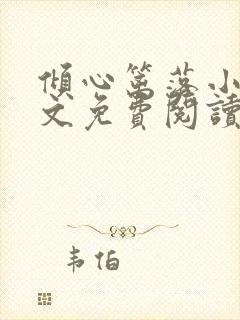 傾心篱落小
文免費閱讀
韦伯